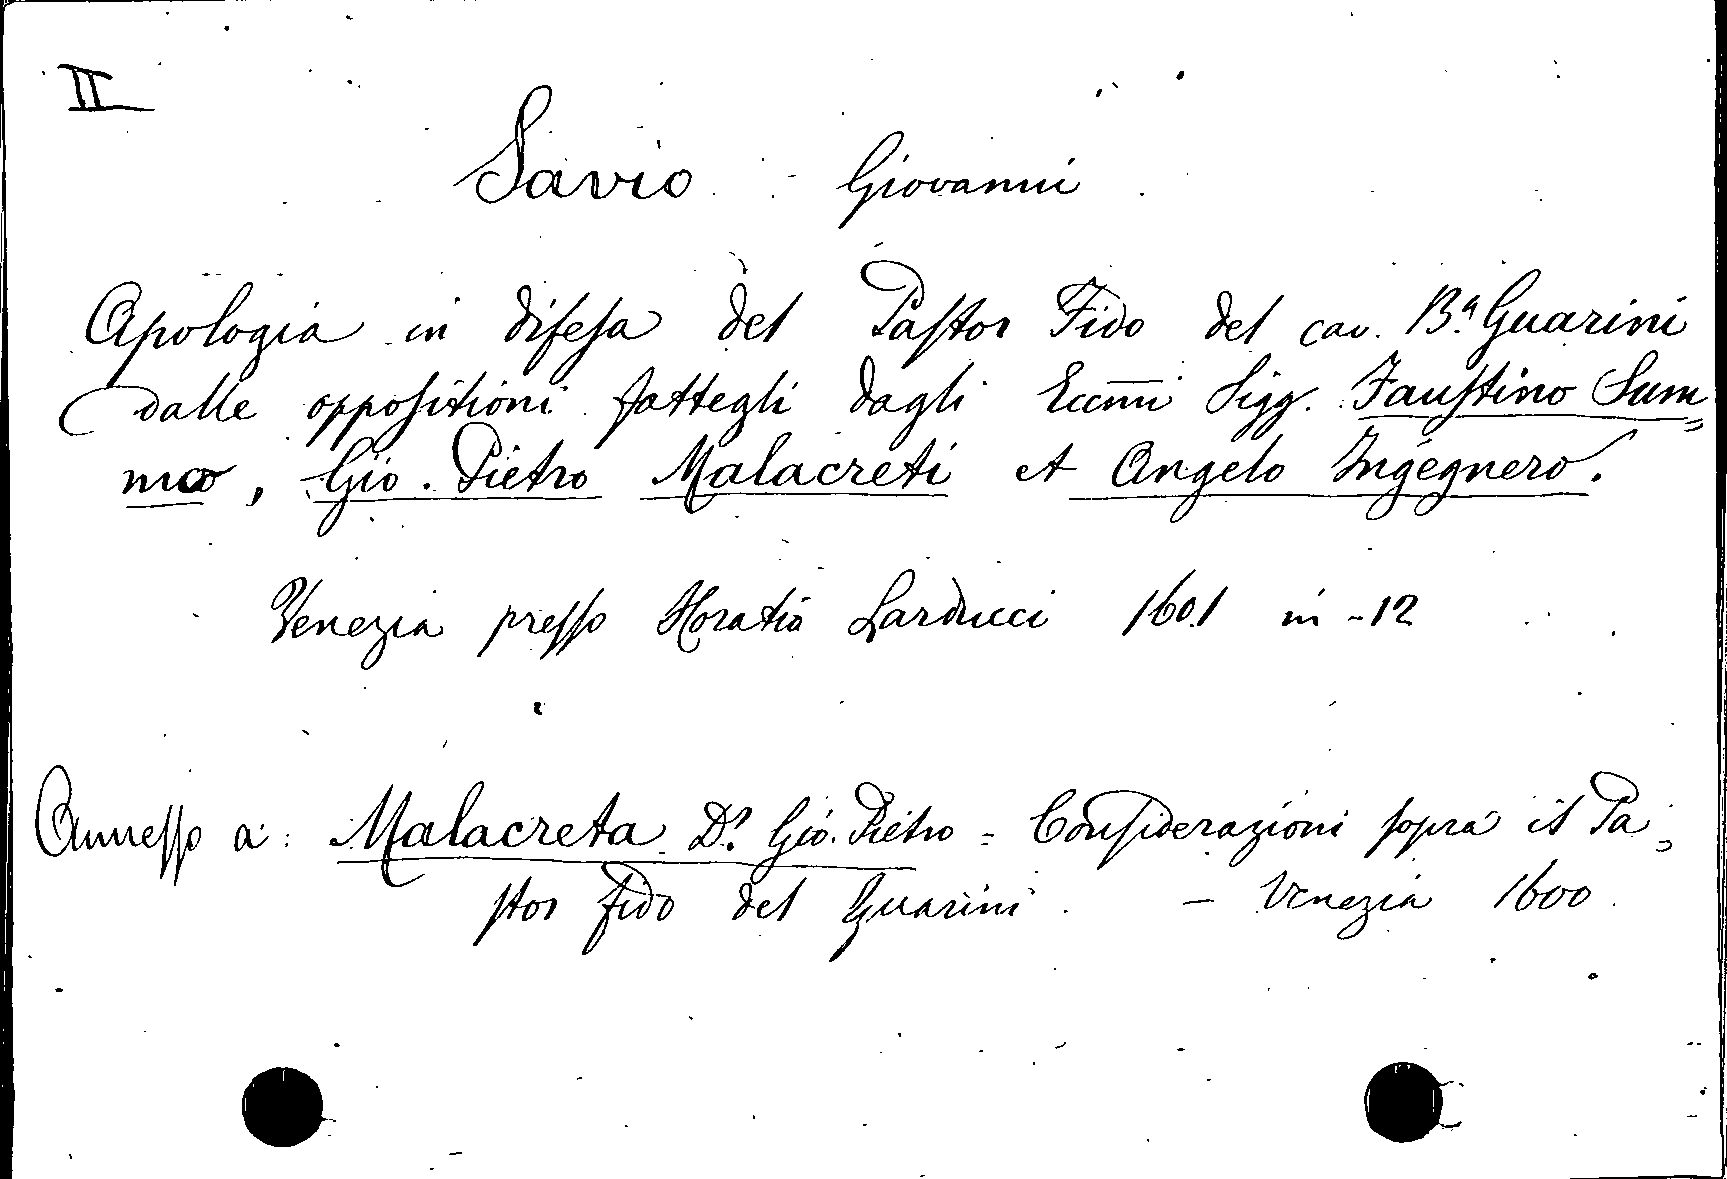 II
Savio Giovanni
Apologia in difesa del Pastor Fido del cav. Bᵃ Guarini
dalle oppositioni fattegli dagli Eccm̄i Sigg. Faustino Sum=
mo, Gio. Pietro Malacreti et Angelo Ingegnero.
Venezia presso Horatio Larducci 1601 in-12
Annesso a: Malacreta Dʳ Gio. Pietro = Considerazioni sopra il Pa=
stor fido del Guarini. - Venezia 1600.